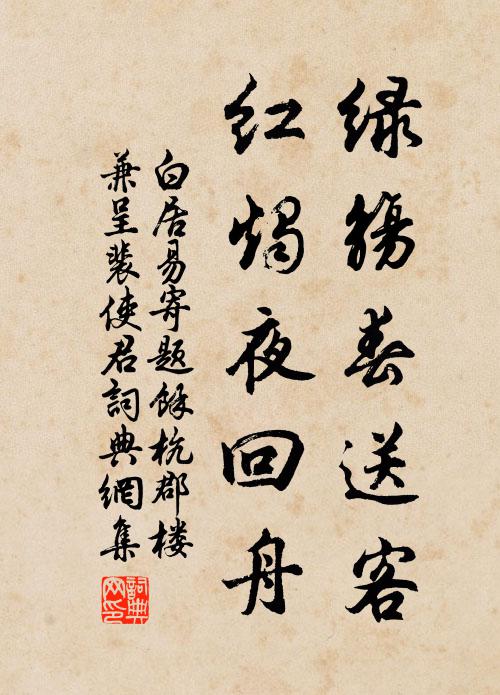 绿觞春送客
红烛夜回舟
白居易寄题餘杭郡楼
兼呈裴使君词典網集